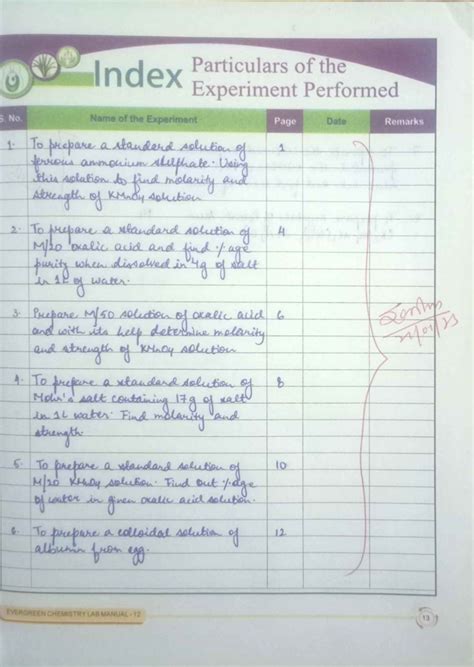 Index Particulars of the
Experiment Performed
S. No. Name of the Experiment Page Date Remarks
1. To prepare a standard solution of 1
ferrous ammonium sulphate. Using
this solution to find molarity and
strength of KMnO4 solution
2. To prepare a standard solution of 4
M/20 oxalic acid and find %age
purity when dissolved in 4g of salt
in 1L of water.
3. Prepare M/50 solution of oxalic acid 6
and with its help determine molarity
and strength of KMnO4 solution
4. To prepare a standard solution of 8
Mohr's salt containing 17g of salt
in 1L water. Find molarity and
strength.
5. To prepare a standard solution of 10
M/20 KMnO4 solution. Find out %age
of water in given oxalic acid solution.
6. To prepare a colloidal solution of 12
albumin from egg.
EVERGREEN CHEMISTRY LAB MANUAL - 12
13